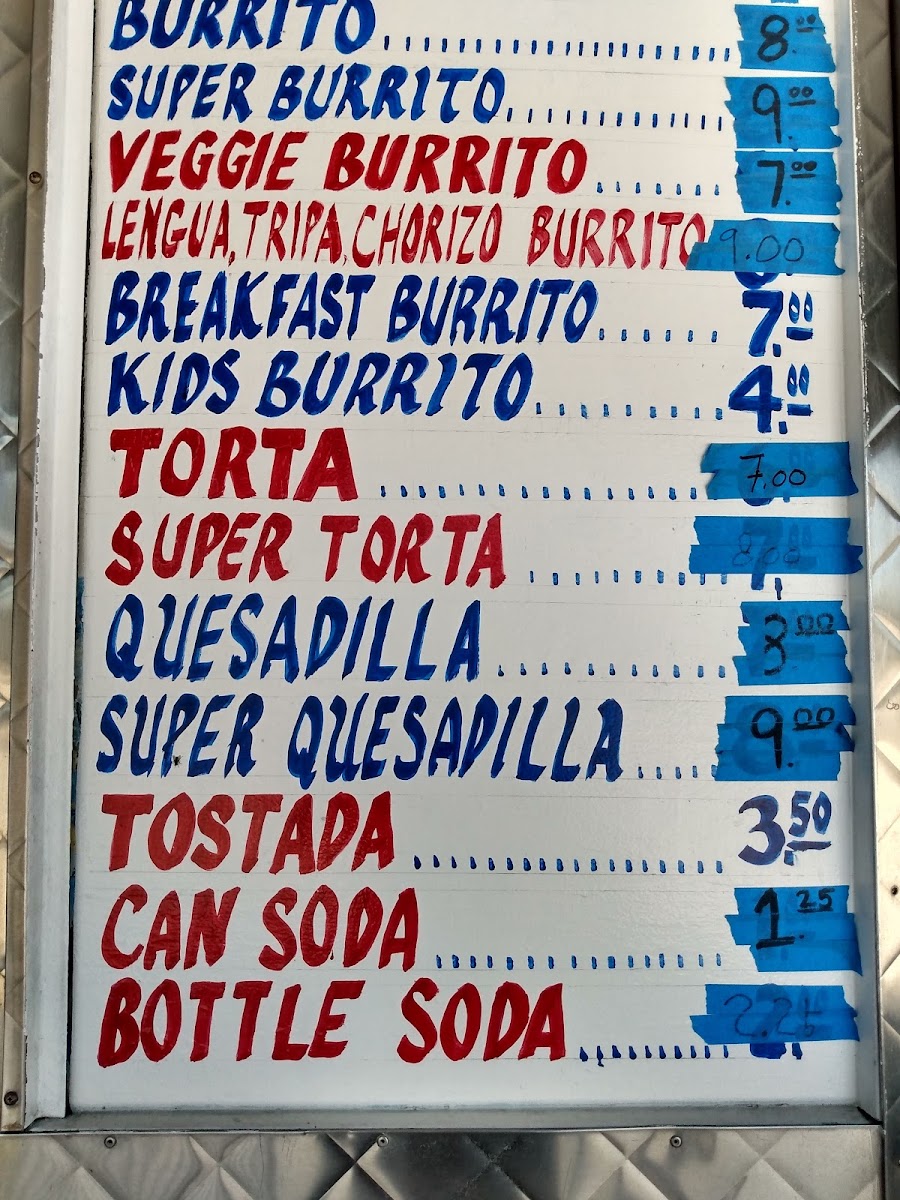 BURRITO 8.00
SUPER BURRITO 9.00
VEGGIE BURRITO 7.00
LENGUA, TRIPA, CHORIZO BURRITO 9.00
BREAKFAST BURRITO 7.00
KIDS BURRITO 4.00
TORTA 7.00
SUPER TORTA 8.00
QUESADILLA 3.00
SUPER QUESADILLA 9.00
TOSTADA 3.50
CAN SODA 1.25
BOTTLE SODA 2.25